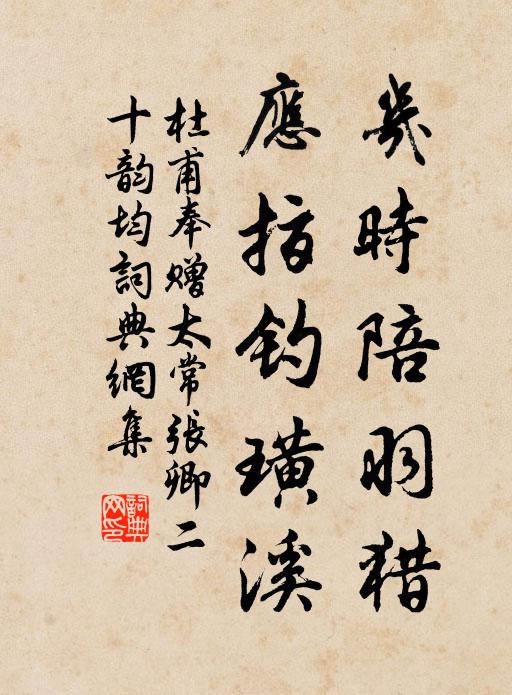 幾時陪羽猎
應指釣璜溪
杜甫奉赠太常張卿二
十韵均詞典網集
詞典
网印